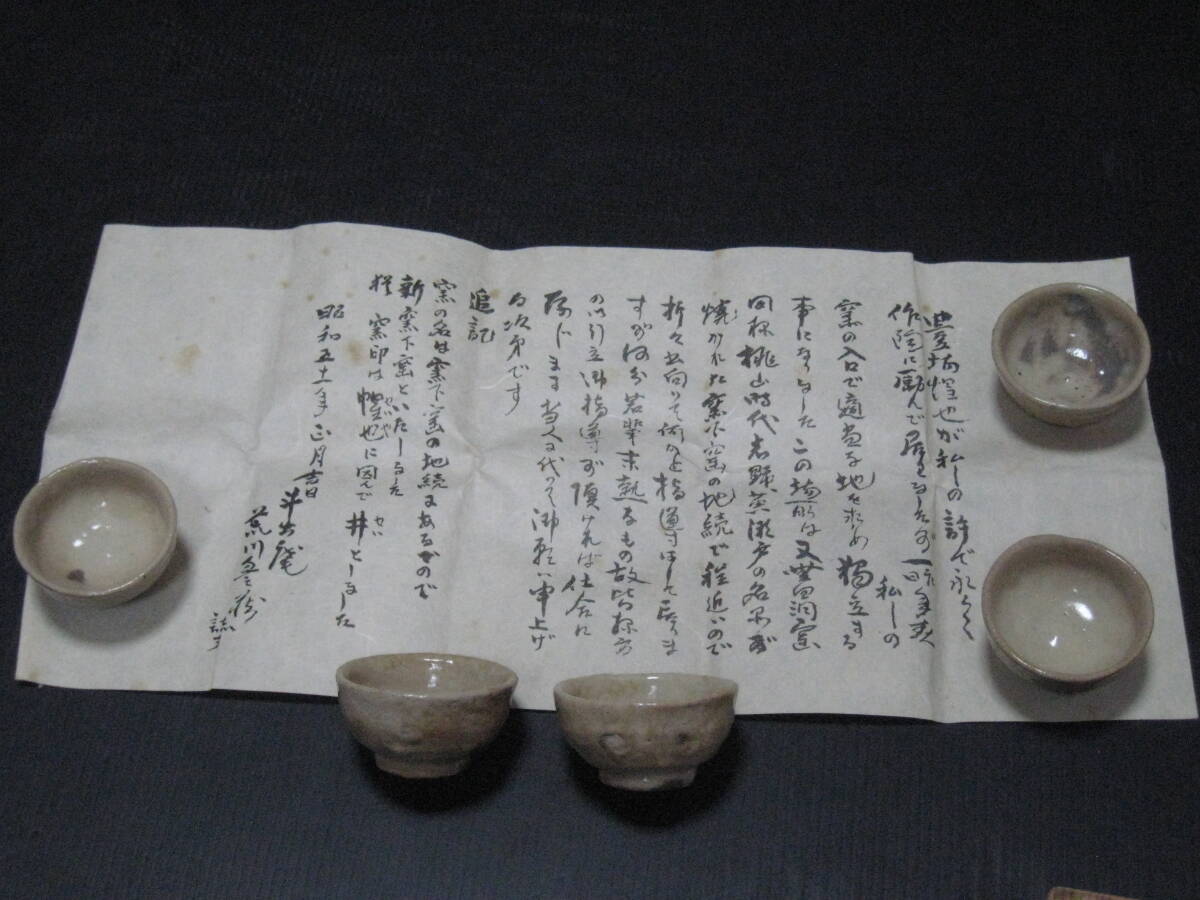 豊場惺也が私しの許で永らく
作陶に励んで居りましたが 一昨年春 私しの
窯の入口で適当な地を求め 獨立する
事になりました この場所は 又無田洞窯
同様桃山時代志野黄瀬戸の名品が
焼かれた窯下窯の地続で程近いので
折々出向いて何かと指導はして居りま
すが何分若輩未熟なもの故皆様方
の御引立御指導が頂ければ仕合に
存じます 当人に代って御願い申上げ
る次第です
追記
窯の名は窯下窯の地続にあるので
新窯下窯といたしました
猶 窯印は 惺也に因んで 井としました
せいや
せい
昭和五十一年正月吉日
斗出庵
荒川豊蔵
誌す